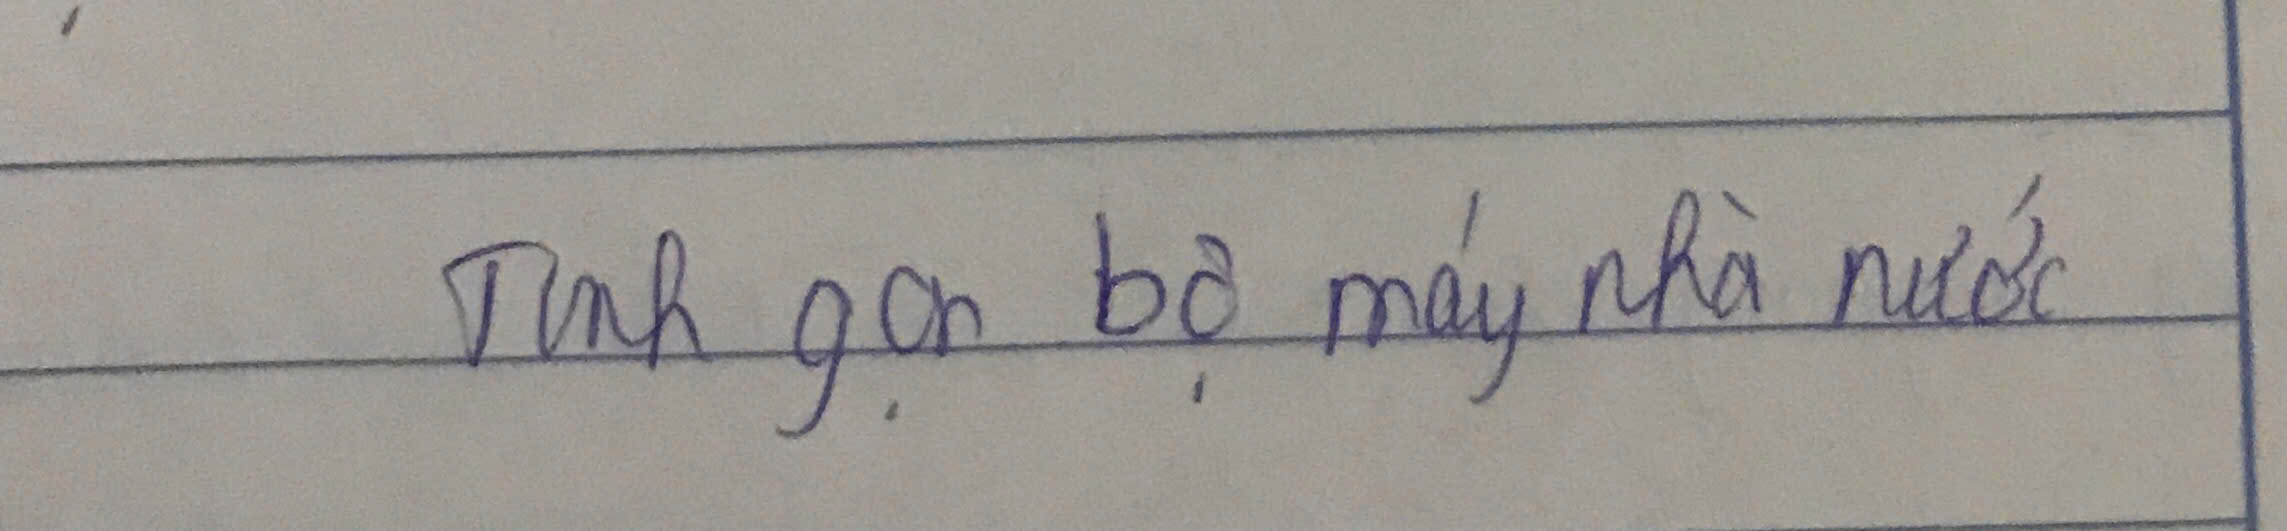 Tinh gọn bộ máy nhà nước